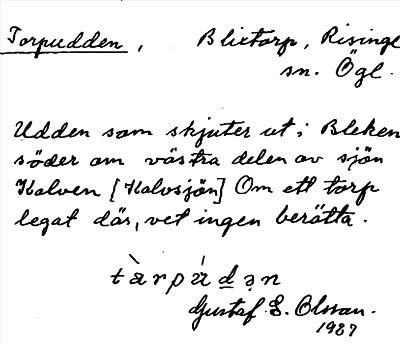 Torpudden, Blixtorp, Risinge
sn. Ögl.
Udden som skjuter ut i Bleken
söder om västra delen av sjön
Kalven [Kalvsjön] Om ett torp
legat där, vet ingen berätta.
tàrpúdən
Gustaf E. Olsson.
1937